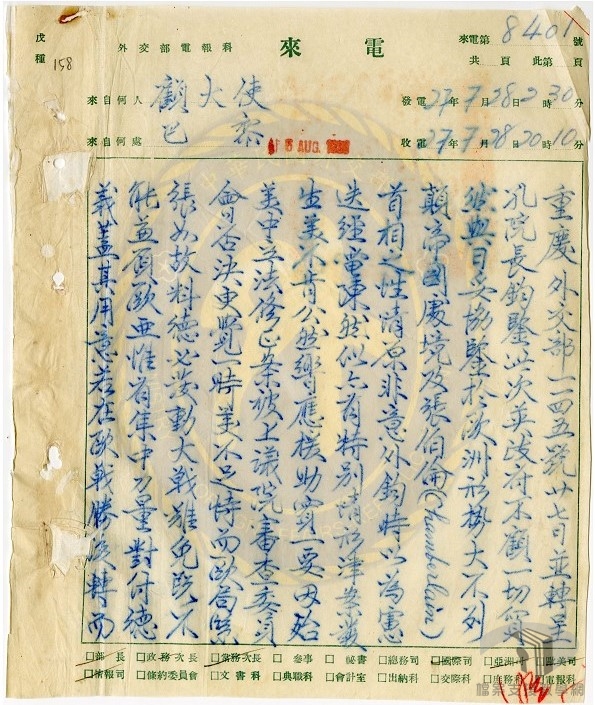 戊種 158
外交部電報科
來電
來電第8401號
共 頁 此第 頁
來自何人 顧大使
發電27年7月28日2時30分
來自何處 巴黎
收電27年7月28日20時10分
AUG
重慶外交部一一四五號廿七日並轉呈
孔院長鈞鑒此次英政府不顧一切突
然與日妥協鑒於歐洲形勢大不列
顛帝國處境及張伯倫(Chamberlain)
首相之性情原非意外鈞時以為慮
迭經電陳然似亦有特別情形津案發
生美不肯公然響應援助實一要因殆
美中立法修正案被上議院審查委員
會否決更覺一時美不足恃而歐局緊
張如故料德必妄動大戰難免既不
能兼顧歐亞惟有集中力量對付德
義蓋其用意若在歐戰勝後轉而
□部長 □政務次長 □常務次長 □參事 □秘書 □總務司 □國際司 □亞洲司 □歐美司
□情報司 □條約委員會 □文書科 □典職科 □會計室 □出納科 □交際科 □庶務科 □電報科
檔案支援教學網